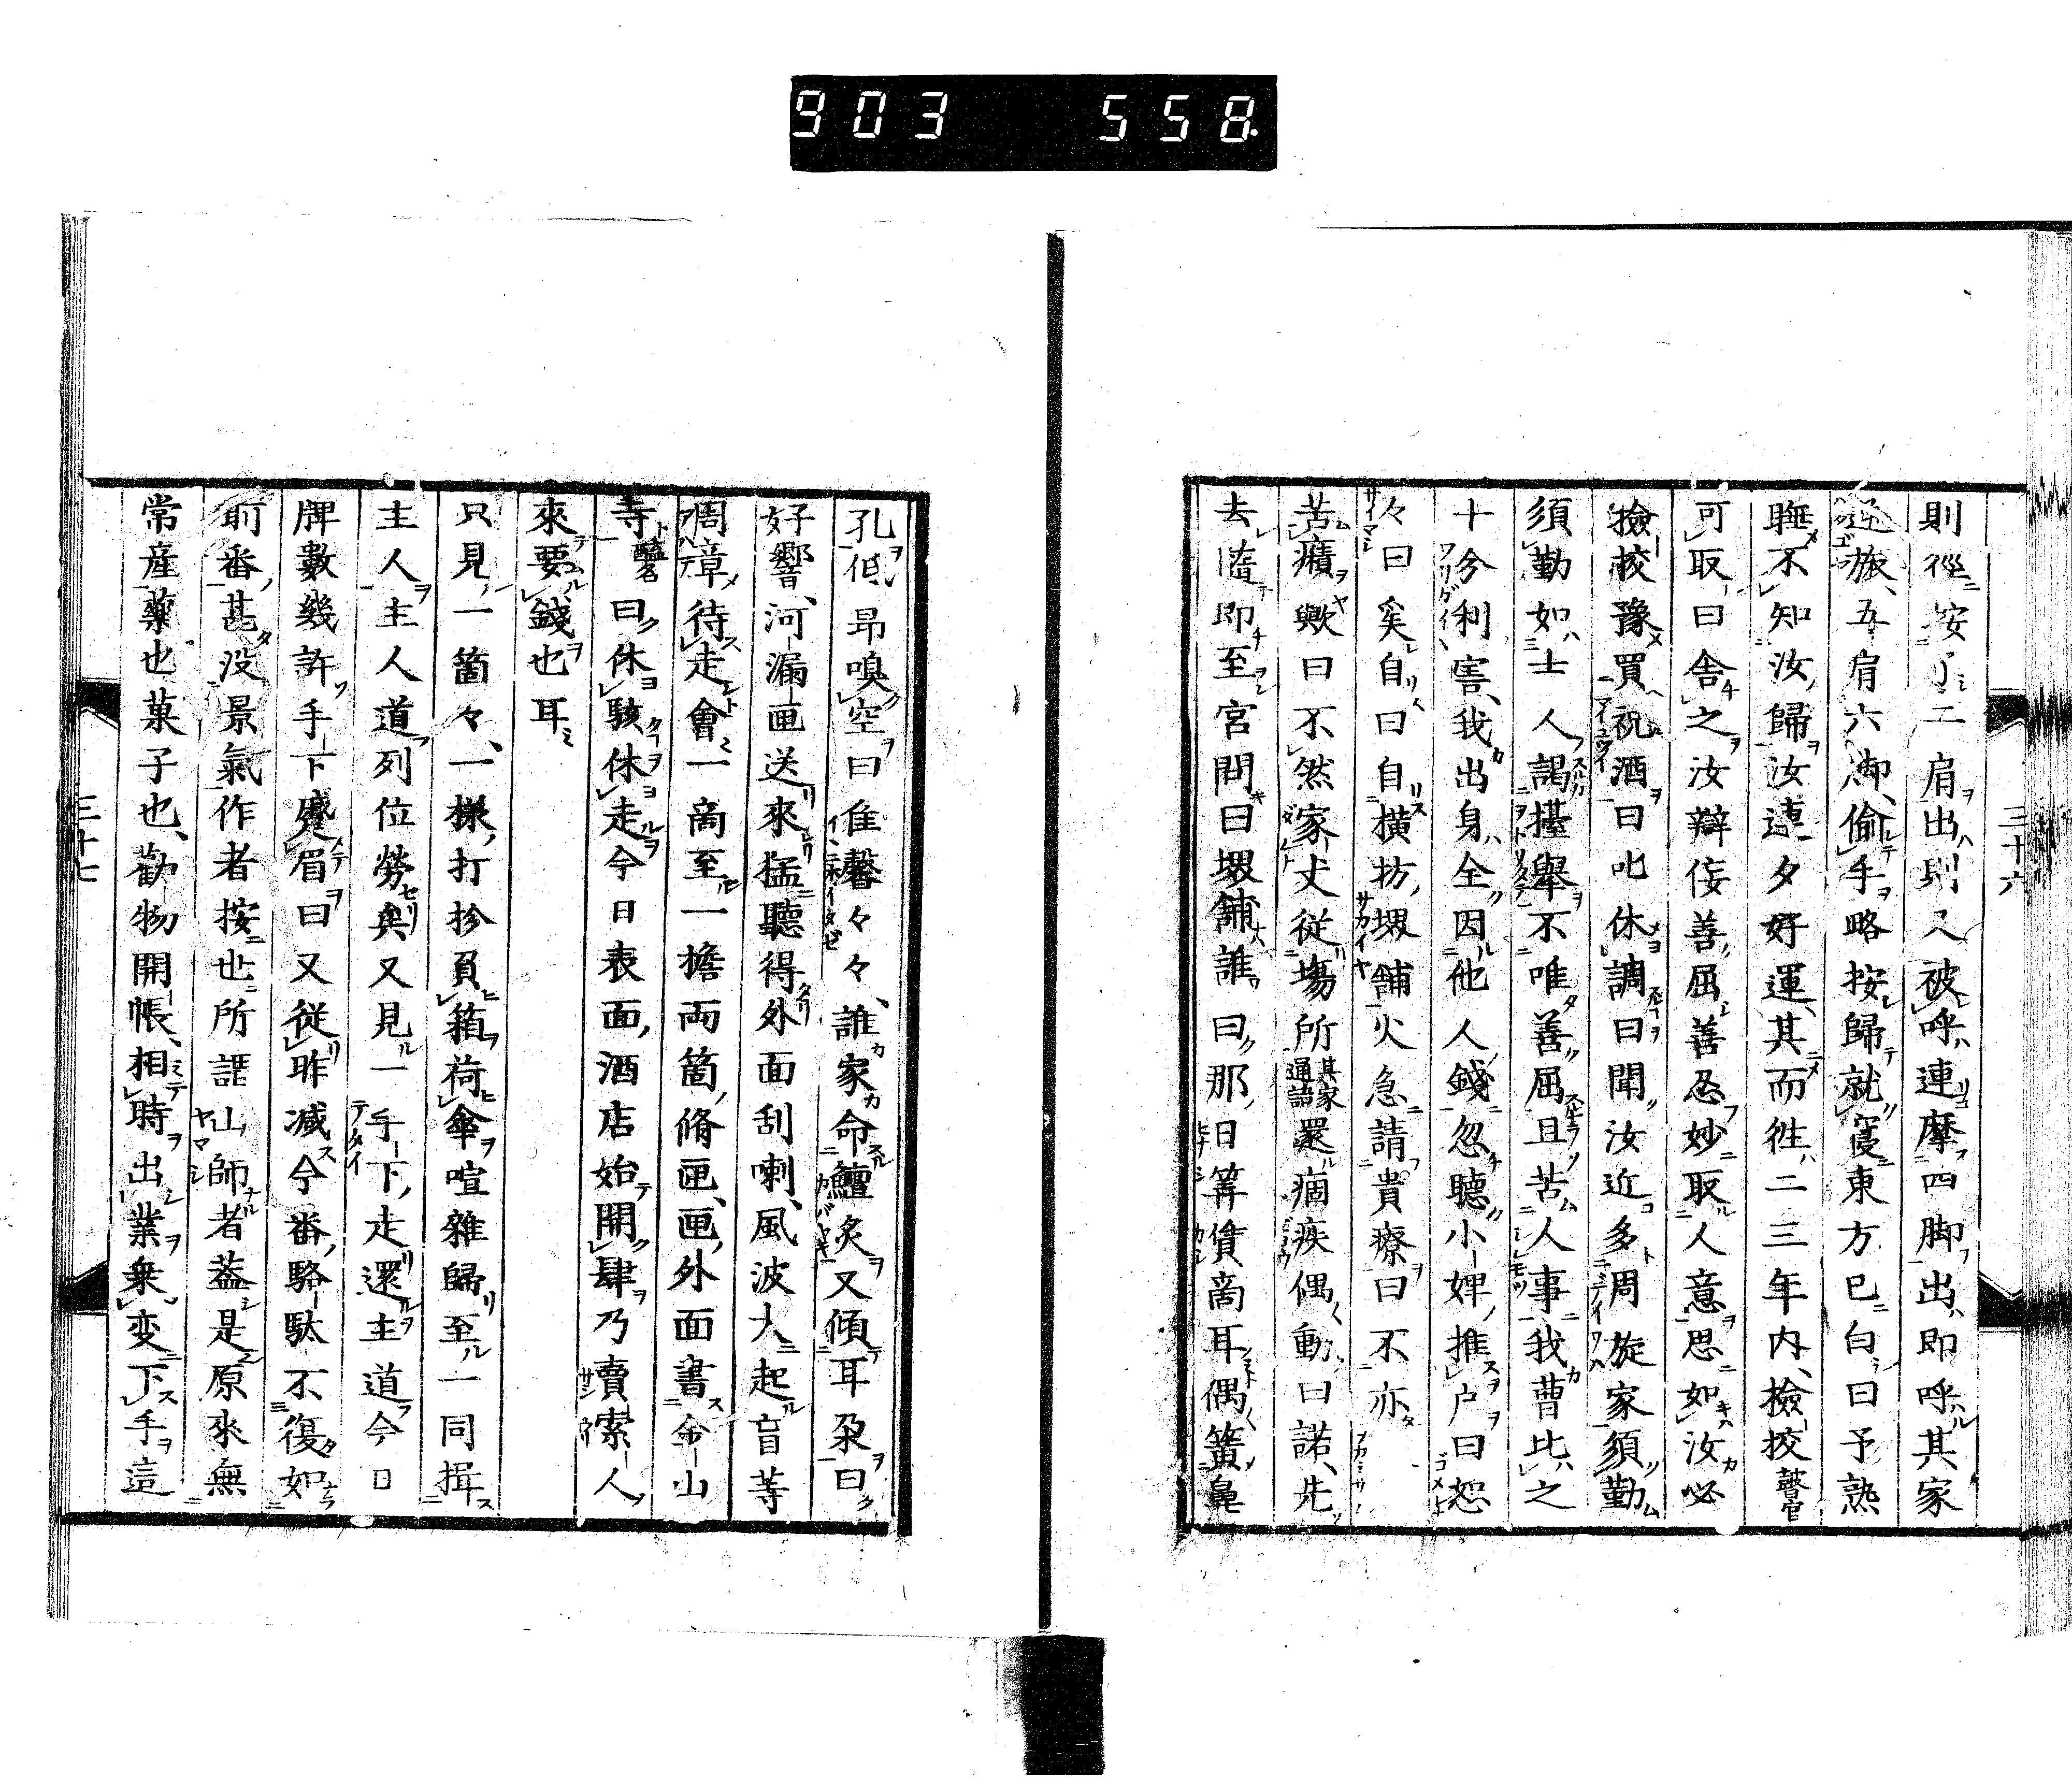 903 558
三十六
則徑按了二肩出則又被呼連摩四脚出即呼其家
逆旅五肩六脚偷手略按歸就寢東方已白曰予熟
睡不知汝歸汝連夕好運其而徃二三年内撿挍瞽官
可取曰舎之汝辯侫善屈善忍妙取人意思如汝必
撿挍豫買祝酒曰叱休調曰聞汝近多周旋家須勤
須勤如士人謁擡舉不唯善屈且苦人事我曹比之
十分利害我出身全因他人錢忽聽小婢推户曰恕
々曰奚自曰自横坊堺舗火急請貴療曰不亦
苦癪歟曰不然家丈従塲所其家通語還痼疾偶動曰諾先
去隨即至宮問曰堺舗誰曰那日筭債啇耳偶簧鼻
孔低昻嗅空曰隹馨々々誰家命鱣炙又傾耳朶曰
好響河漏匣送來猛聽得外面刮喇風波大起盲等
周章待走會一离至一擔両箇脩匣匣外面書金山
寺醢名曰休駭休走今日表面酒店始開肆乃賣索人
來要錢也耳
只見一箇々一様打扮負箱荷傘喧雜歸至一同揖
主人主人道列位勞矣又見一手下走還主道今日
牌數幾許手下蹙眉曰又從昨減今番駱駄不復如
前番甚没景氣作者按也所謂山師者葢是原來無
常産藥也菓子也歡物開帳相時出業乗変下手這
三十七